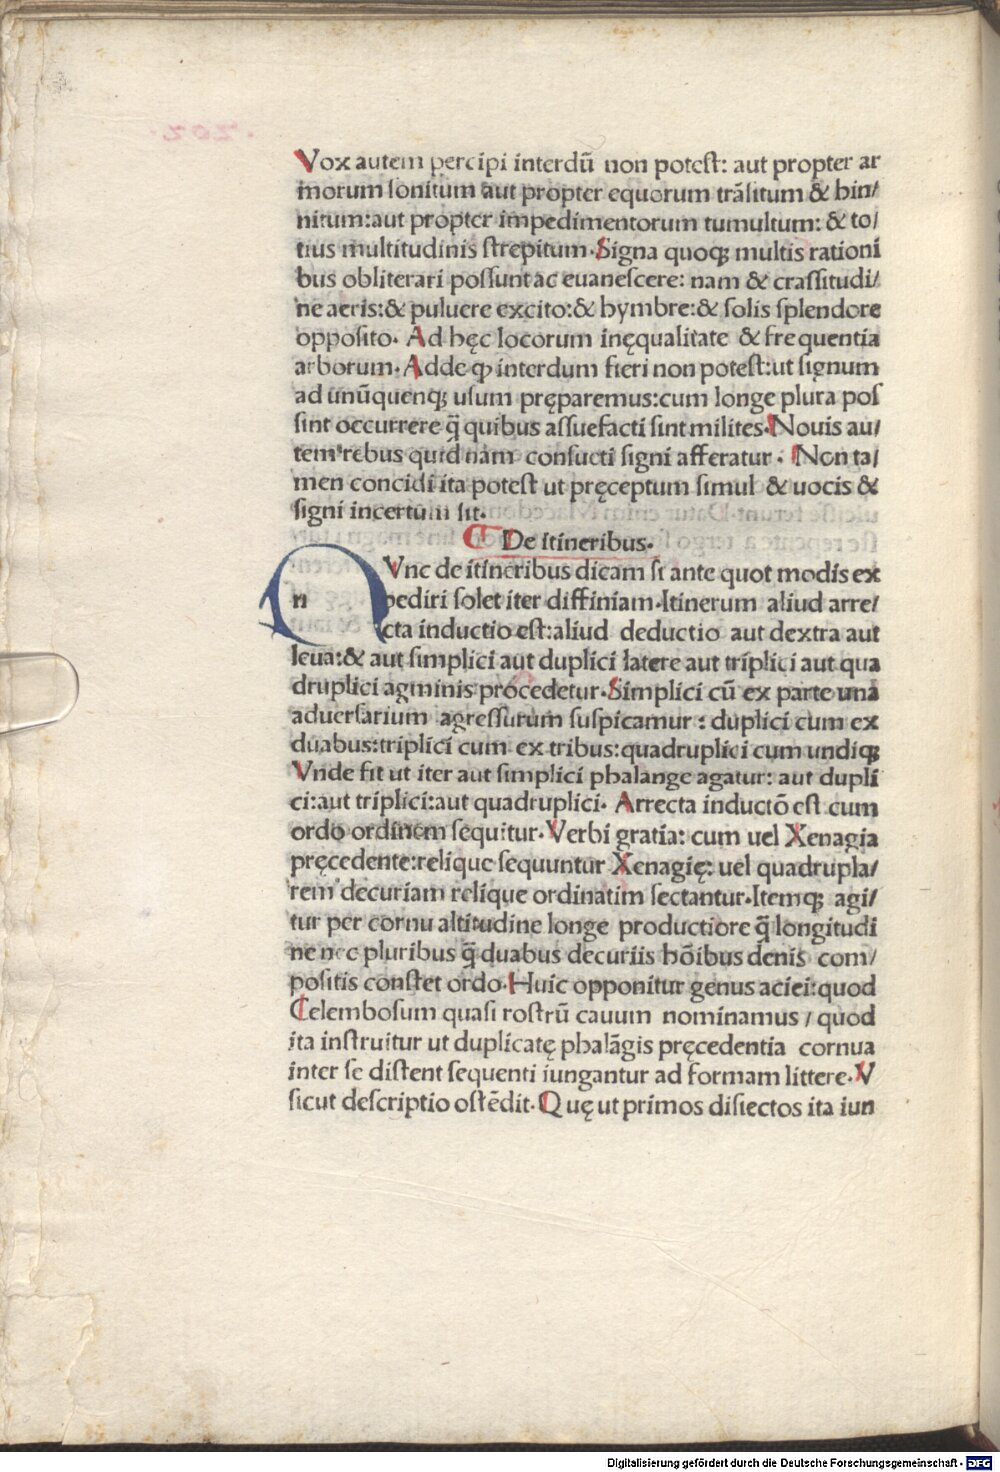 Vox autem percipi interdũ non potest: aut propter ar
morum sonitum aut propter equorum trãsitum & hin/
nitum:aut propter impedimentorum tumultum: & to/
tius multitudinis strepitum. Signa quoqȝ multis rationi
bus obliterari possunt ac euanescere: nam & crassitudi/
ne aeris:& puluere excito:& hymbre:& solis splendore
opposito. Ad hęc locorum inęqualitate & frequentia
arborum. Adde ꝙ interdum fieri non potest:ut signum
ad unũquenqȝ usum pręparemus:cum longe plura pos
sint occurrere q̃ quibus assuefacti sint milites. Nouis au/
tem rebus quid nam consueti signi afferatur. Non ta/
men concidi ita potest ut pręceptum simul & uocis &
signi incertum sit.
De itineribus.
n Vnc de itineribus dicam si ante quot modis ex
pediri solet iter diffiniam. Itinerum aliud arre/
cta inductio est:aliud deductio aut dextra aut
leua:& aut simplici aut duplici latere aut triplici aut qua
druplici agminis procedetur. Simplici cũ ex parte una
aduersarium agressurum suspicamur: duplici cum ex
duabus:triplici cum ex tribus:quadruplici cum undiqȝ
Vnde fit ut iter aut simplici phalange agatur: aut dupli
ci:aut triplici:aut quadruplici. Arrecta inductõ est cum
ordo ordinem sequitur. Verbi gratia: cum uel Xenagia
pręcedente:relique sequuntur Xenagię: uel quadrupla/
rem decuriam relique ordinatim sectantur. Itemqȝ agi/
tur per cornu altitudine longe productiore q̃ longitudi
ne nec pluribus q̃ duabus decuriis hõibus denis com/
positis constet ordo. Huic opponitur genus aciei:quod
Celembosum quasi rostrũ cauum nominamus / quod
ita instruitur ut duplicatę phalãgis pręcedentia cornua
inter se distent sequenti iungantur ad formam littere. V
sicut descriptio ostẽdit. Quę ut primos disiectos ita iun
Digitalisierung gefördert durch die Deutsche Forschungsgemeinschaft - DFG